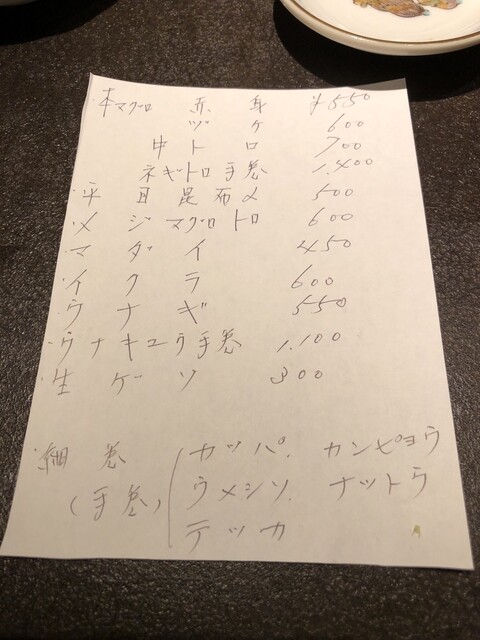 ・本マグロ 赤身 ¥550
ヅケ 600
中トロ 700
ネギトロ手巻 1,400
・平目昆布〆 500
・メジマグロトロ 600
・マダイ 450
・イクラ 600
・ウナギ 550
・ウナキュウ手巻 1,100
・生ゲソ 300
細巻 カッパ. カンピョウ
(手巻) ウメシソ. ナットウ
テッカ